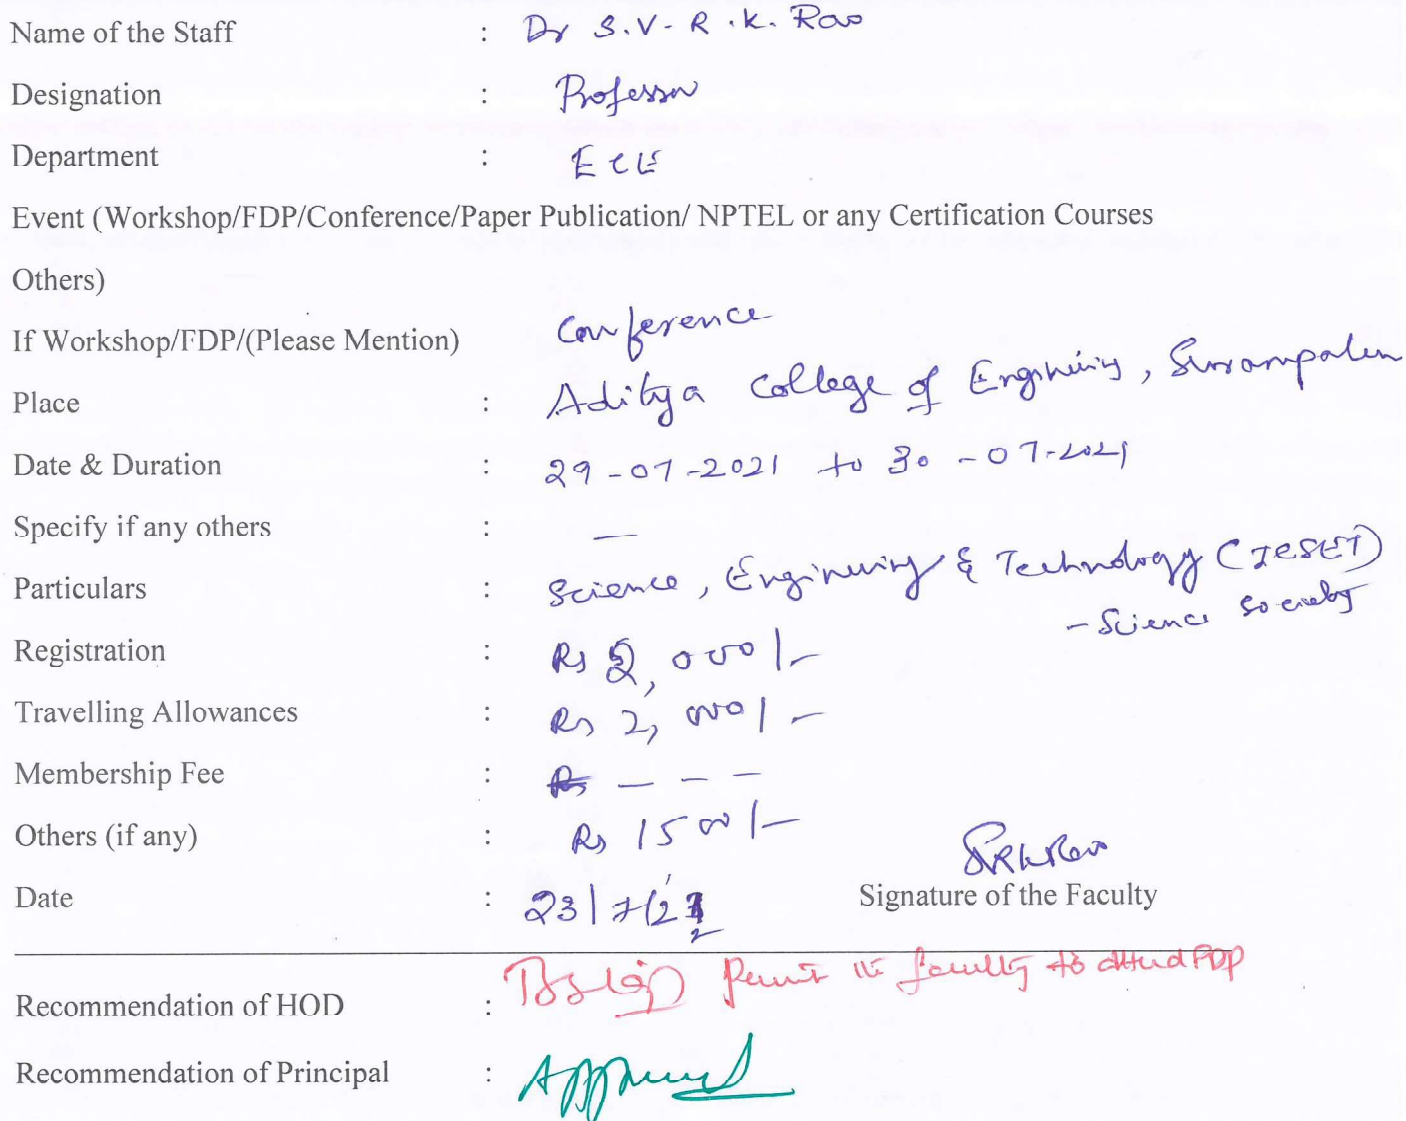 Name of the Staff : Dr S.V.R.K. Rao
Designation : Professor
Department : ECE
Event (Workshop/FDP/Conference/Paper Publication/ NPTEL or any Certification Courses
Others)
If Workshop/FDP/(Please Mention) Conference
Place : Aditya College of Engineering, Surampalem
Date & Duration : 29-07-2021 to 30-07-2021
Specify if any others : —
Particulars : Science, Engineering & Technology (ICSET)
- Science Society
Registration : Rs 2,000/-
Travelling Allowances : Rs 2,000/-
Membership Fee : Rs - - -
Others (if any) : Rs 1500/-
SRKRao
Date : 23/7/21 Signature of the Faculty
Recommendation of HOD : permit the faculty to attend FDP
Recommendation of Principal : Approved